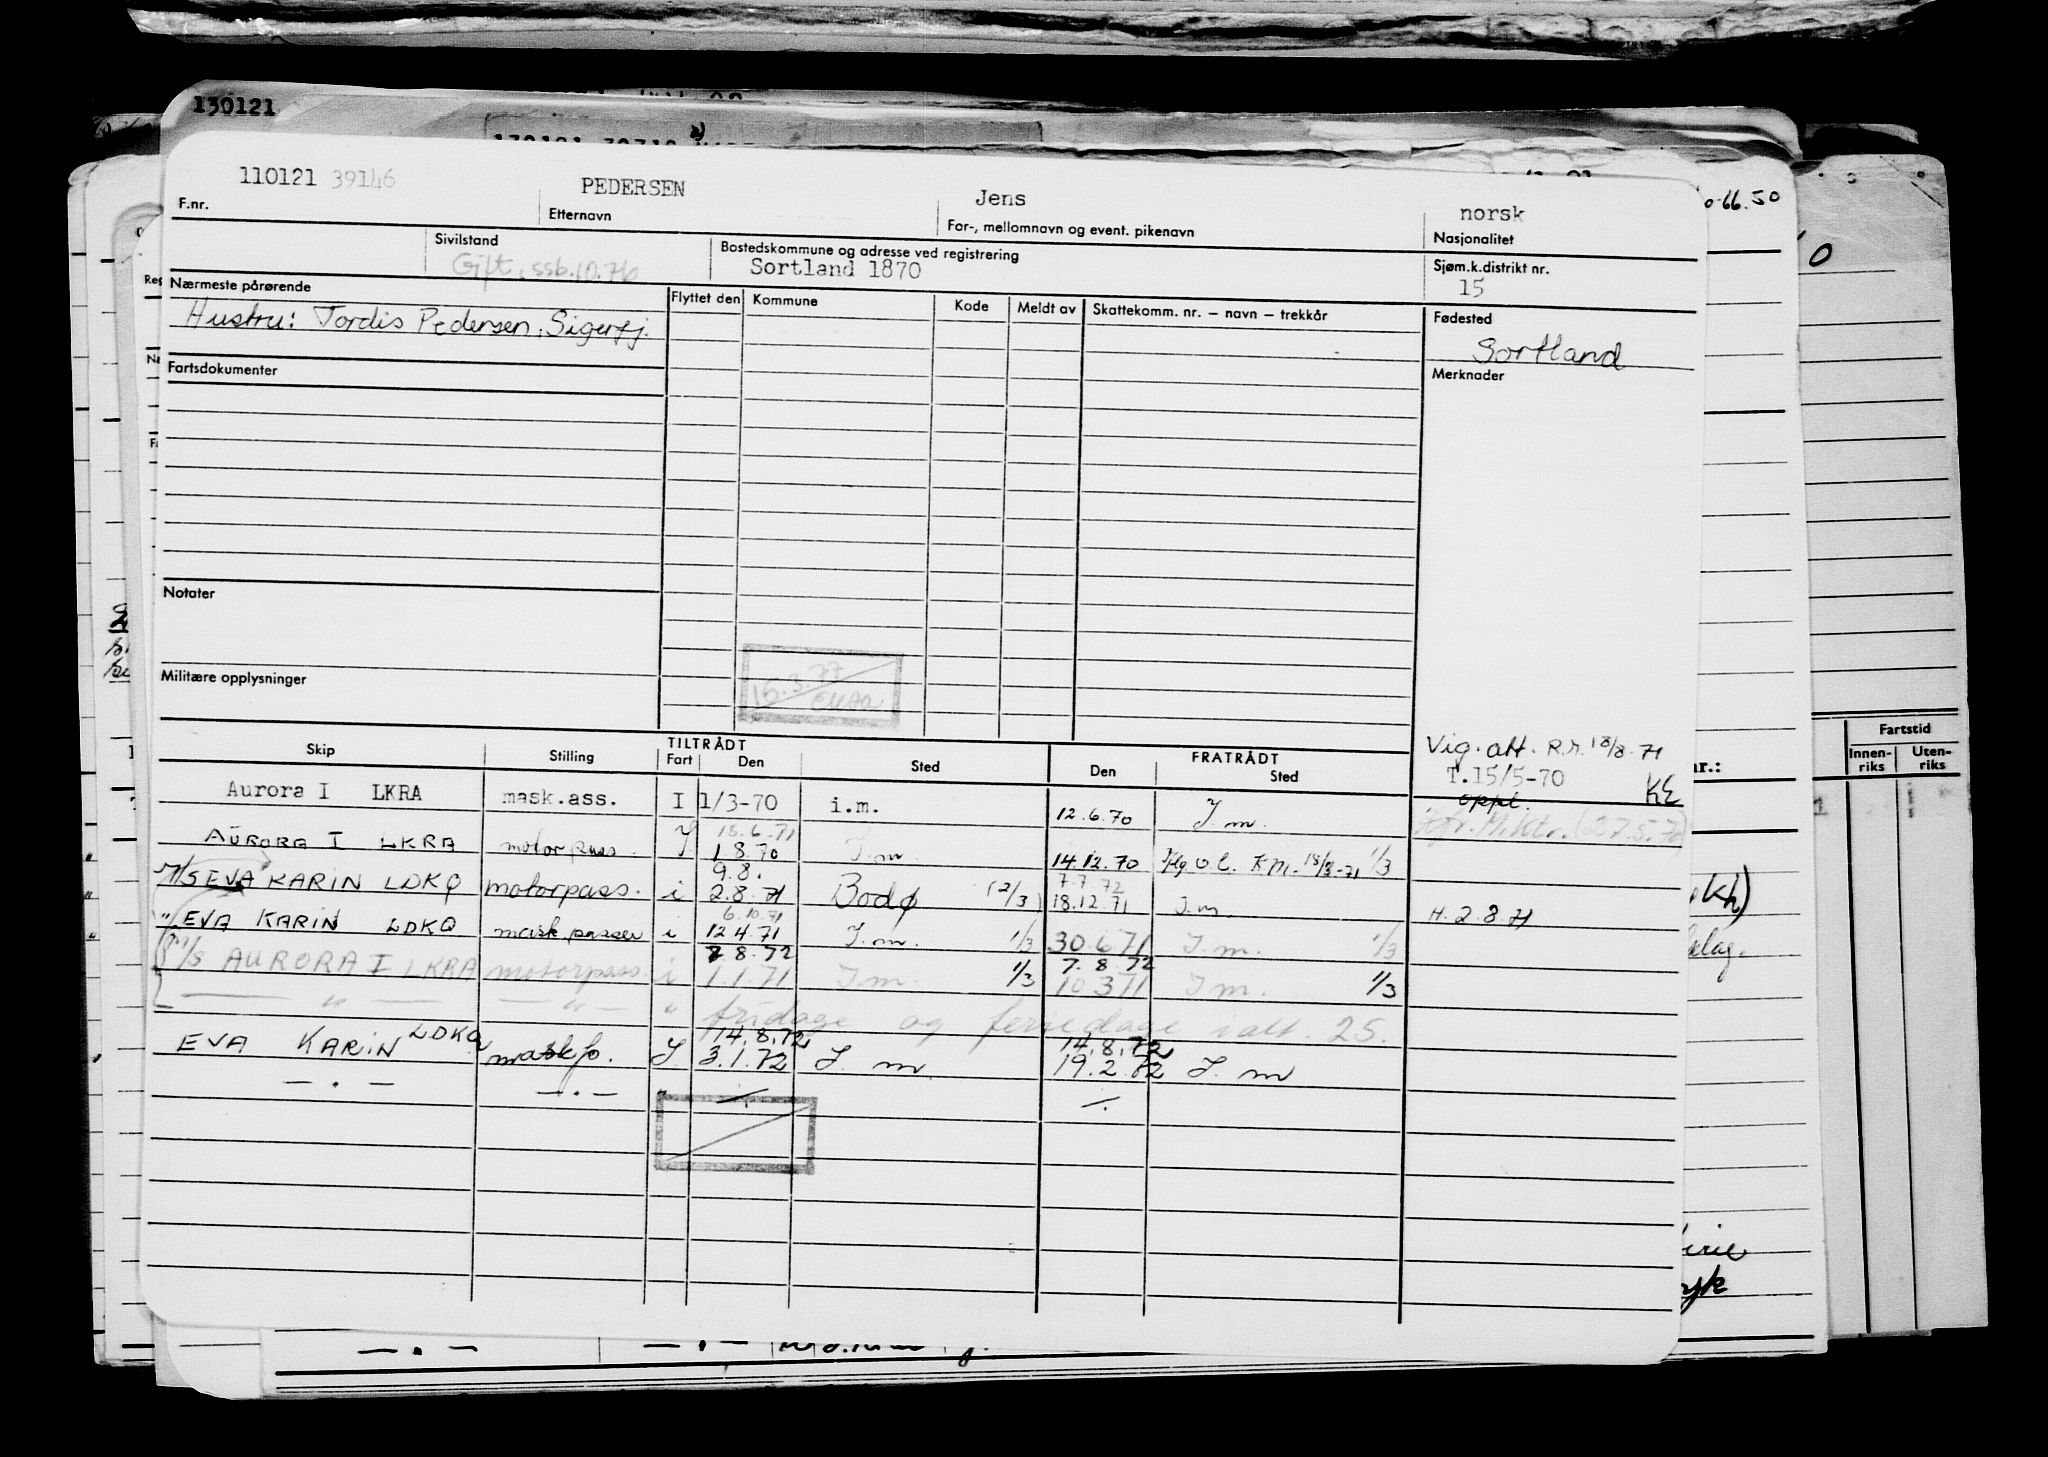 130121
110121 39146 PEDERSEN Jens norsk
F.nr. Etternavn For-, mellomnavn og event. pikenavn Nasjonalitet
Sivilstand Bostedskommune og adresse ved registrering Sjøm.k.distrikt nr.
Gift, ssb.10.76 Sortland 1870 15
Nærmeste pårørende Flyttet den Kommune Kode Meldt av Skattekomm. nr. – navn – trekkår Fødested
Hustru: Tordis Pedersen, Sigerfj. Sortland
Fartsdokumenter Merknader
Notater
16.3.77
Militære opplysninger
Skip Stilling TILTRÅDT Fart Den Sted FRATRÅDT Den Sted
Vig. att. R.r. 18/8-71
T.15/5-70 KE
Aurora I LKRA mask.ass. I 1/3-70 i.m. 12.6.70 I.m. oppl.
15.6.71
AURORA I LKRA motorpass. I 1 8.70 I.m 14.12.70 18/3-71 1/3
9.8. 7.7.72
M/S EVA KARIN LDKQ motorpass. i 2.8.71 Bodø (2/3) 18.12.71 I.m. H. 2.8.71
6.10.71
" EVA KARIN LDKQ mask passer i 12 4.71 I.m. 1/3 30.6.71 I.m. 1/3
8.72 7.8.72
M/S AURORA I LKRA motorpass. i 1.1.71 I.m. 1/3 10 3 71 I m. 1/3
— " — — " — " fridage og feriedage ialt. 25.
14.8.72 14.8.72
EVA KARIN LDKQ maskp. I 3.1.72 I. m 19.2.72 I. m
— . — — . — " ./. ./.
66.50
Fartstid
Innen-riks Uten-riks